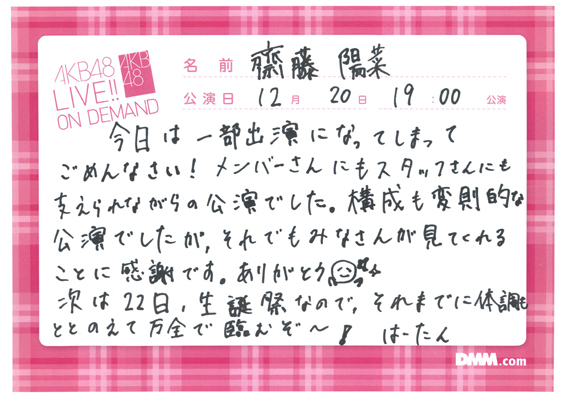 AKB48
LIVE!!
ON DEMAND
AKB
48
名前 齋藤 陽菜
公演日 12月 20日 19:00 公演
今日は一部出演になってしまって
ごめんなさい！メンバーさんにもスタッフさんにも
支えられながらの公演でした。構成も変則的な
公演でしたが、それでもみなさんが見てくれる
ことに感謝です。ありがとう
次は22日、生誕祭なので、それまでに体調も
ととのえて万全で臨むぞ〜！ はーたん
DMM.com